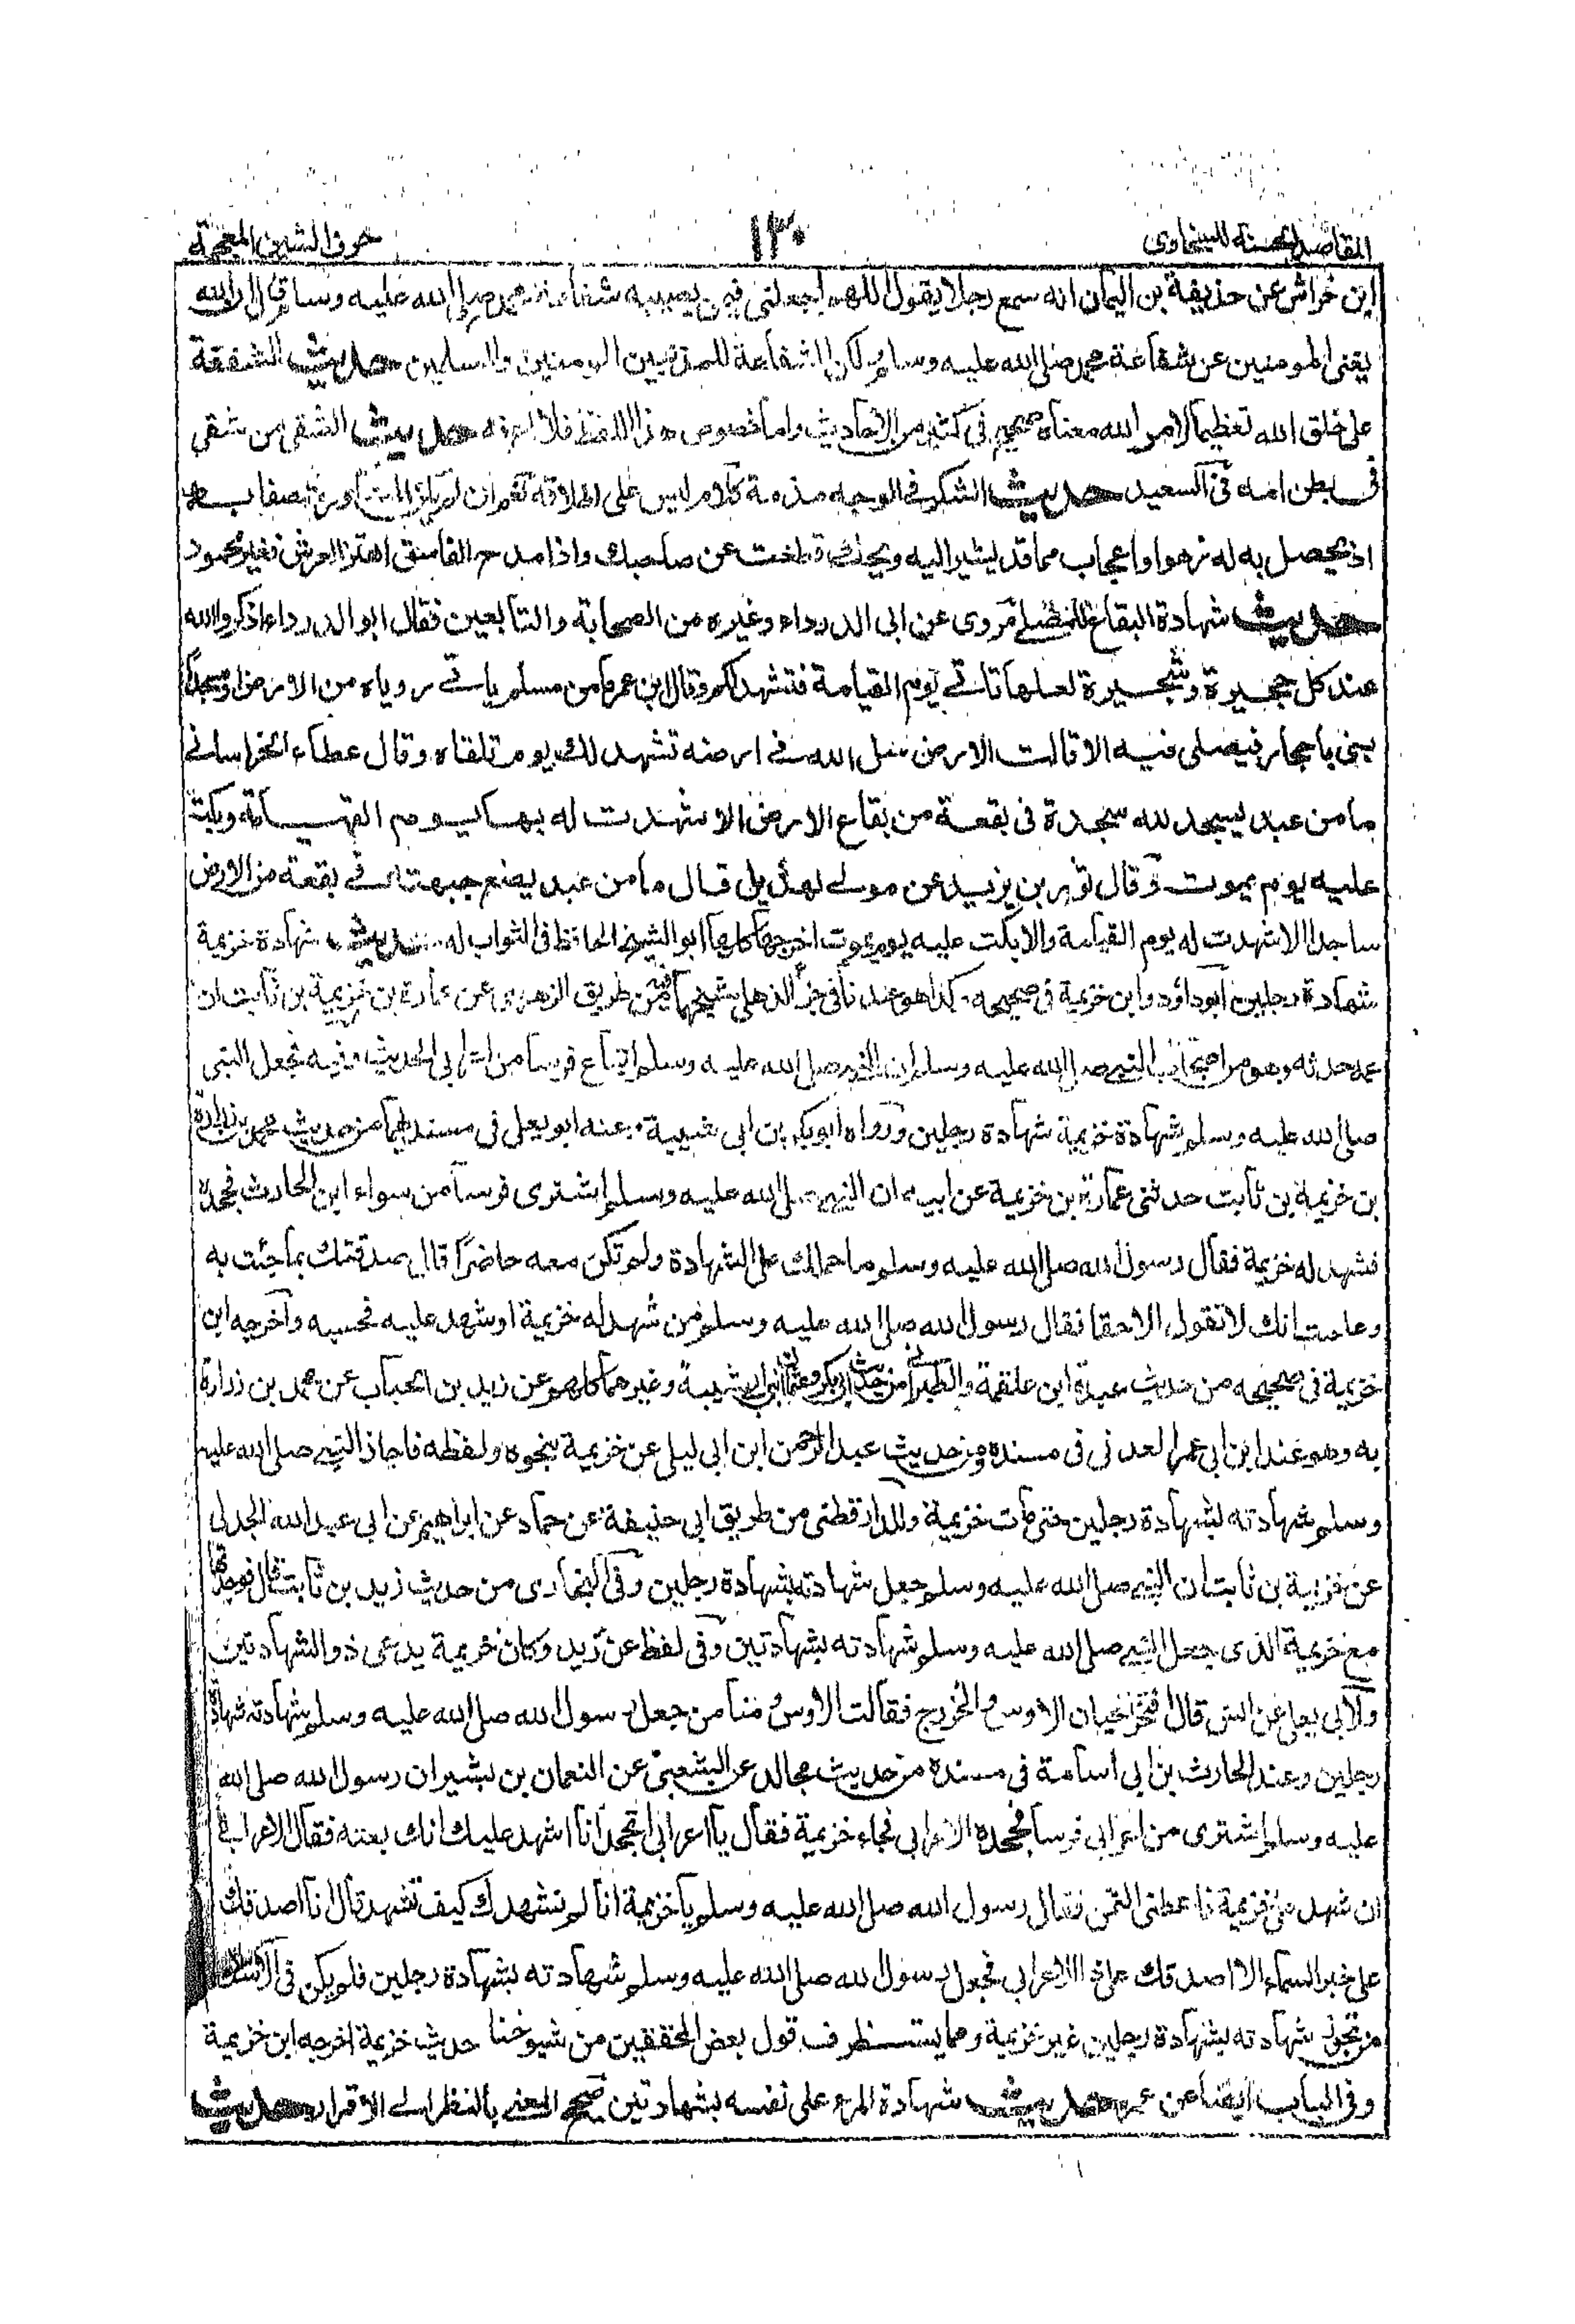 المقاصد الحسنة للسخاوى ١٣٠ حرف الشين المعجمة
ابن خراش عن حذيفة بن اليمان انه سمع رجلا يقول اللهم اجعلنى فيمن يصيبه شفاعة محمد صلى الله عليه وسلم قال ان الله
يغنى المومنين عن شفاعة محمد صلى الله عليه وسلم ولكن الشفاعة للمذنبين المومنين والمسلمين حديث الشفقة
على خلق الله تعظيم لامر الله معناه صحيح فى كثير من الاحاديث واما خصوص هذا اللفظ فلا اعرفه حديث الشقى من شقى
فى بطن امه فى السعيد حديث الشكر فى الوجه مذمة كلام ليس على اطلاقه نعم ان لم يكن
اذ يحصل به له زهوا واعجاب مما قد يشير اليه ويحك قطعت عن صاحبك واذا مدح الفاسق اهتز العرش فغير محمود
حديث شهادة البقاع للمصلى روى عن ابى الدرداء وغيره من الصحابة والتابعين فقال ابو الدرداء اذكروا الله
عند كل حجيرة وشجيرة لعلها تاتى يوم القيامة فتشهد لكم وقال ابن عمر ما من مسلم ياتى روياه من الارض او مسجدا
بنى باحجار فيصلى فيه الا قالت الارض سل الله فى ارضه تشهد لك يوم تلقاه وقال عطاء الخراسانى
ما من عبد يسجد لله سجدة فى بقعة من بقاع الارض الا شهدت له بها يوم القيامة وبكت
عليه يوم يموت وقال ثور بن يزيد عن مولى لهذيل قال ما من عبد يضع جبهته فى بقعة من الارض
ساجدا الا شهدت له يوم القيامة والا بكت عليه يوم يموت اخرجها كلها ابو الشيخ الحافظ فى الثواب له حديث شهادة خزيمة
شهادة رجلين ابو داود وابن خزيمة فى صحيحه كذا هو عندنا فى جزء الذهلى شيخهما فيه من طريق الزهرى عن عمارة بن خزيمة بن ثابت ان
عمه حدثه وهو من اصحاب النبى صلى الله عليه وسلم ان النبى صلى الله عليه وسلم ابتاع فرسا من اعرابى الحديث وفيه فجعل النبى
صلى الله عليه وسلم شهادة خزيمة شهادة رجلين ورواه ابو بكر بن ابى شيبة وعنه ابو يعلى فى مسنديهما من حديث محمد بن زرارة
بن خزيمة بن ثابت حدثنى عمارة بن خزيمة عن ابيه ان النبى صلى الله عليه وسلم اشترى فرسا من سواء ابن الحارث فجحده
فشهد له خزيمة فقال رسول الله صلى الله عليه وسلم ما حملك على الشهادة ولم تكن معه حاضرا قال صدقتك بما جئت به
وعلمت انك لا تقول الا حقا فقال رسول الله صلى الله عليه وسلم من شهد له خزيمة او شهد عليه فحسبه واخرجه ابن
خزيمة فى صحيحه من حديث عبدة ابن علقمة والطبرانى من حديث ابى بكر وعثمان ابنى ابى شيبة وغيرهما كلهم عن زيد بن الحباب عن محمد بن زرارة
به وهو عند ابن ابى عمر العدنى فى مسنده من حديث عبد الرحمن ابن ابى ليلى عن خزيمة بنحوه ولفظه فاجاز النبى صلى الله عليه
وسلم شهادته بشهادة رجلين حتى مات خزيمة وللدارقطنى من طريق ابى حنيفة عن حماد عن ابراهيم عن ابى عبد الله الجدلى
عن خزيمة بن ثابت ان النبى صلى الله عليه وسلم جعل شهادته بشهادة رجلين وفى البخارى من حديث زيد بن ثابت قال فوجدتها
مع خزيمة الذى جعل النبى صلى الله عليه وسلم شهادته بشهادتين وفى لفظ عن زيد وكان خزيمة يدعى ذو الشهادتين
ولابى يعلى عن انس قال افتخر الحيان الاوس والخزرج فقالت الاوس ومنا من جعل رسول الله صلى الله عليه وسلم شهادته شهادة
رجلين وعند الحارث بن ابى اسامة فى مسنده من حديث مجالد عن الشعبى عن النعمان بن بشير ان رسول الله صلى الله
عليه وسلم اشترى من اعرابى فرسا فجحده الاعرابى فجاء خزيمة فقال يا اعرابى اتجحد انا اشهد عليك انك بعته فقال الاعرابى
ان شهد على خزيمة فاعطنى الثمن فقال رسول الله صلى الله عليه وسلم يا خزيمة انا لم نشهدك كيف تشهد قال انا اصدقك
على خبر السماء الا اصدقك على ذا الاعرابى فجعل رسول الله صلى الله عليه وسلم شهادته بشهادة رجلين فلم يكن فى الاسلام
من تجوز شهادته بشهادة رجلين غير خزيمة ومما يستظرف قول بعض المحققين من شيوخنا حديث خزيمة اخرجه ابن خزيمة
وفى الباب ايضا عن عمر حديث شهادة المرء على نفسه بشهادتين صحيح المعنى بالنظر الى الاقرار حديث